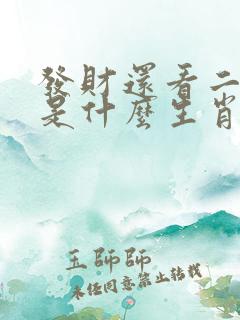 發財還看二
是什麼生肖
王師師
未任同意禁止转载